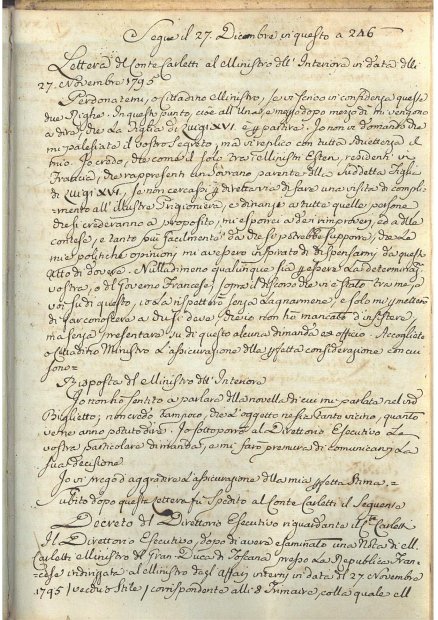 Segue il 27. Dicembre vi questo a 246
Lettera del Conte Carletti al Ministro dell' Interiora in data delli
27. Novembre 1795
Perdonatemi, o Cittadino Ministro, se vi scrivo in confidenza queste
due Righe. In questo punto, cioè all'Una, e mezzo dopo mezzo dì mi vengono
a dire, che la Figlia di Luigi XVI. è p partire. Io non vi domando che
mi palesiate il vostro Segreto, ma vi replico con tutta schiettezza il
mio. Io credo, che come il solo tra i Ministri Esteri, residenti in
Francia, che rappresenti un Sovrano parente della Suddetta Figlia
di Luigi XVI. se non cercassi p diretta via di fare una visita di compli-
mento all' illustre Prigioniera, e dinanzi a tutte quelle persone
che si crederanno a proposito, mi esporrei a dei rimproveri, ed a delle
contese, e tanto più facilmente, da che si potrebbe supporre, che le
mie politiche opinioni mi avessero inspirato di dispensarmi da questo
atto di dovere. Nulladimeno qualunque sia p essere la determinaz.
vostra, o del Governo Francese sopra il discorso che vi è stato tra me, e
voi su di questo, io la rispetterò senza lagnarmene, e solo mi permetterò
di far conoscere a chi si deve, che io non ho mancato d'insistere,
ma senza presentare su di questo alcuna dimanda ex officio. Accogliete
o Cittadino Ministro l'assicurazione della pfetta considerazione con cui
sono =
Risposta del Ministro dell' Interiora
Io non ho sentito a parlare della novella di cui mi parlate nel vro
Biglietto, non credo tampoco, che l'oggetto ne sia tanto vicino, quanto
venne anno potuto dire. Io sottoporrò al Direttorio Esecutivo la
vostra particolare dimanda, e mi farò premura di comunicarvi la
sua decisione.
Io vi prego d'aggradire l'assicurazione della mia pfetta Stima. =
ubito dopo queste lettere fù spedito al Conte Carletti il Seguente
Decreto del Direttorio Esecutivo riguardante il Carletti
Il Direttorio Esecutivo, dopo di avere esaminato una Nota di M.
Carletti Ministro del Gran-Duca di Toscana presso la Republica Fran-
cese indirigata al Ministro degl' Affari interni in data del 27 Novembre
1795 (vecchio Stile) corrispondente alli 6 Frimaire colla quale ell